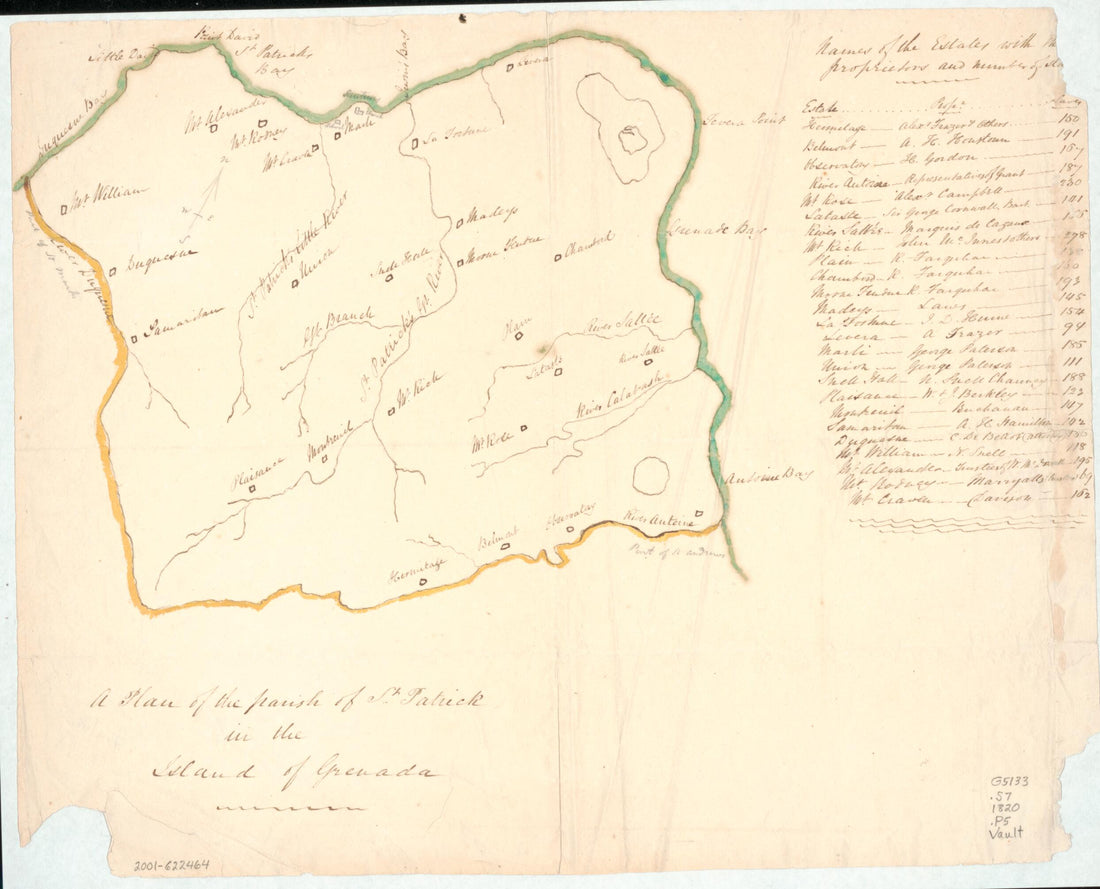 Names of the Estates with
proprietors and number of
Estate Propr. Slaves
Hermitage — Alexr. Frazer & Others — 150
Belmont — A. H. Houstoun — 191
Observatory — H. Gordon — 167
River Antoine — Representatives of Grant — 187
Mt Rose — Alexr. Campbell — 200
Sataste — Sir George Cornwall, Bart. 101
River Sallee — Marquis de Cazeau
Mt Rich — John McInnes & others — 298
Plain — R. Farquhar
Chambord — R. Farquhar
Morne Fendue R. Farquhar — 193
Madeys — Laws — 145
La Fortune — J. L. Hume — 154
Levera — A Frazer — 94
Marli — George Paterson — 155
Union — George Paterson — 111
Snell Hall — N. Snell Chauncey — 188
Plaisance — W. & J. Berkley — 123
Montreuil — Buchanan — 147
Samaritan — A. H. Hamilton — 102
Duquesne — C. De Bears
Mt. William — N. Snell — 118
Mt. Alexander
Mt. Rodney — Marryatt
Mt. Craven — Davison — 162
Duquesne Bay
Little Bay
Point David
St. Patricks
Bay
Levera
Levera Point
Mt. Alexander
Mt. Rodney
Mt. Craven
Marli
La Fortune
Mt. William
N
E
S
Madeys
Grenade Bay
Duquesne
St. Patrick's Little River
Union
Snell Hall
Morne Fendue
Chambord
River Duquesne
Samaritan
Gt. Branch
St. Patrick's Gt. River
Plain
River Sallee
Sataste
River Sallee
Mt. Rich
River Calabash
Mt. Rose
Montreuil
Plaisance
Antoine Bay
Hermitage
Belmont
Observatory
River Antoine
Part of St. Andrews
A Plan of the parish of St. Patrick
in the
Island of Grenada
G5133
.S7
1820
.P5
Vault
2001-622464